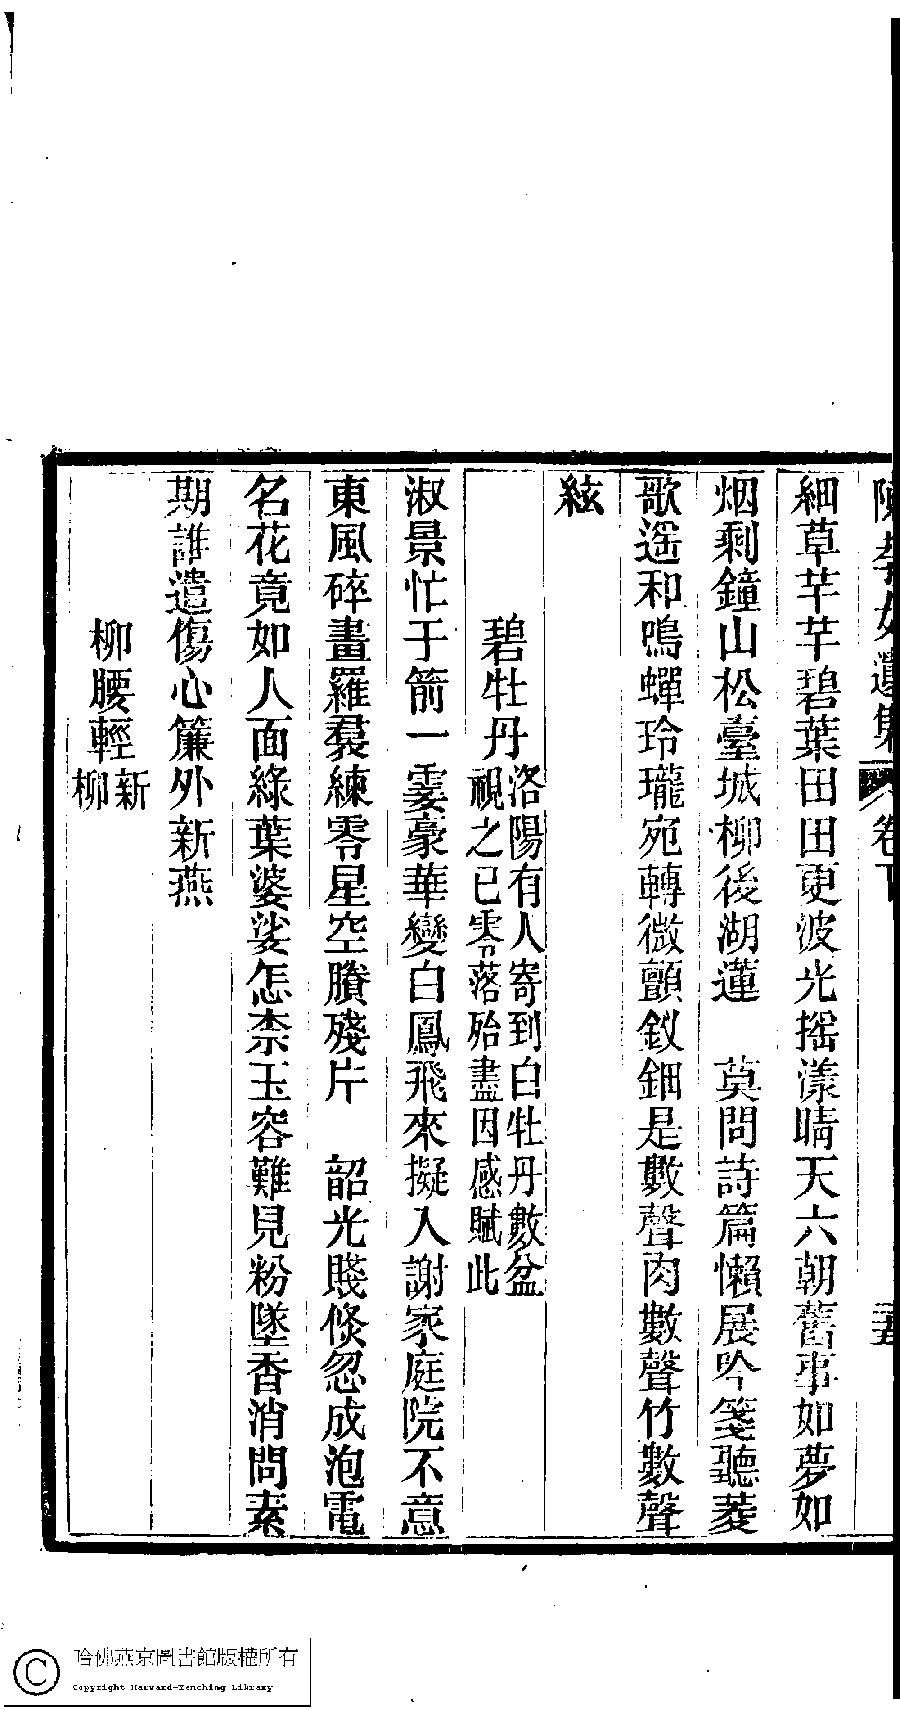 陳孝女遺集 卷下
細草芊芊碧葉田田更波光搖漾晴天六朝舊事如夢如
烟剩鐘山松臺城柳後湖蓮　莫問詩篇懶展吟箋聽菱
歌遥和鳴蟬玲瓏宛轉微顫釵鈿是數聲肉數聲竹數聲
絃
碧牡丹
洛陽有人寄到白牡丹數盆
視之已零落殆盡因感賦此
淑景忙于箭一霎豪華變白鳳飛來擬入謝家庭院不意
東風碎畫羅裠練零星空賸殘片　韶光賤倏忽成泡電
名花竟如人面綠葉婆娑怎柰玉容難見粉墜香消問素
期誰遣傷心簾外新燕
柳腰輕
新
柳
哈佛燕京圖書館版權所有
Copyright Harvard-Yenching Library